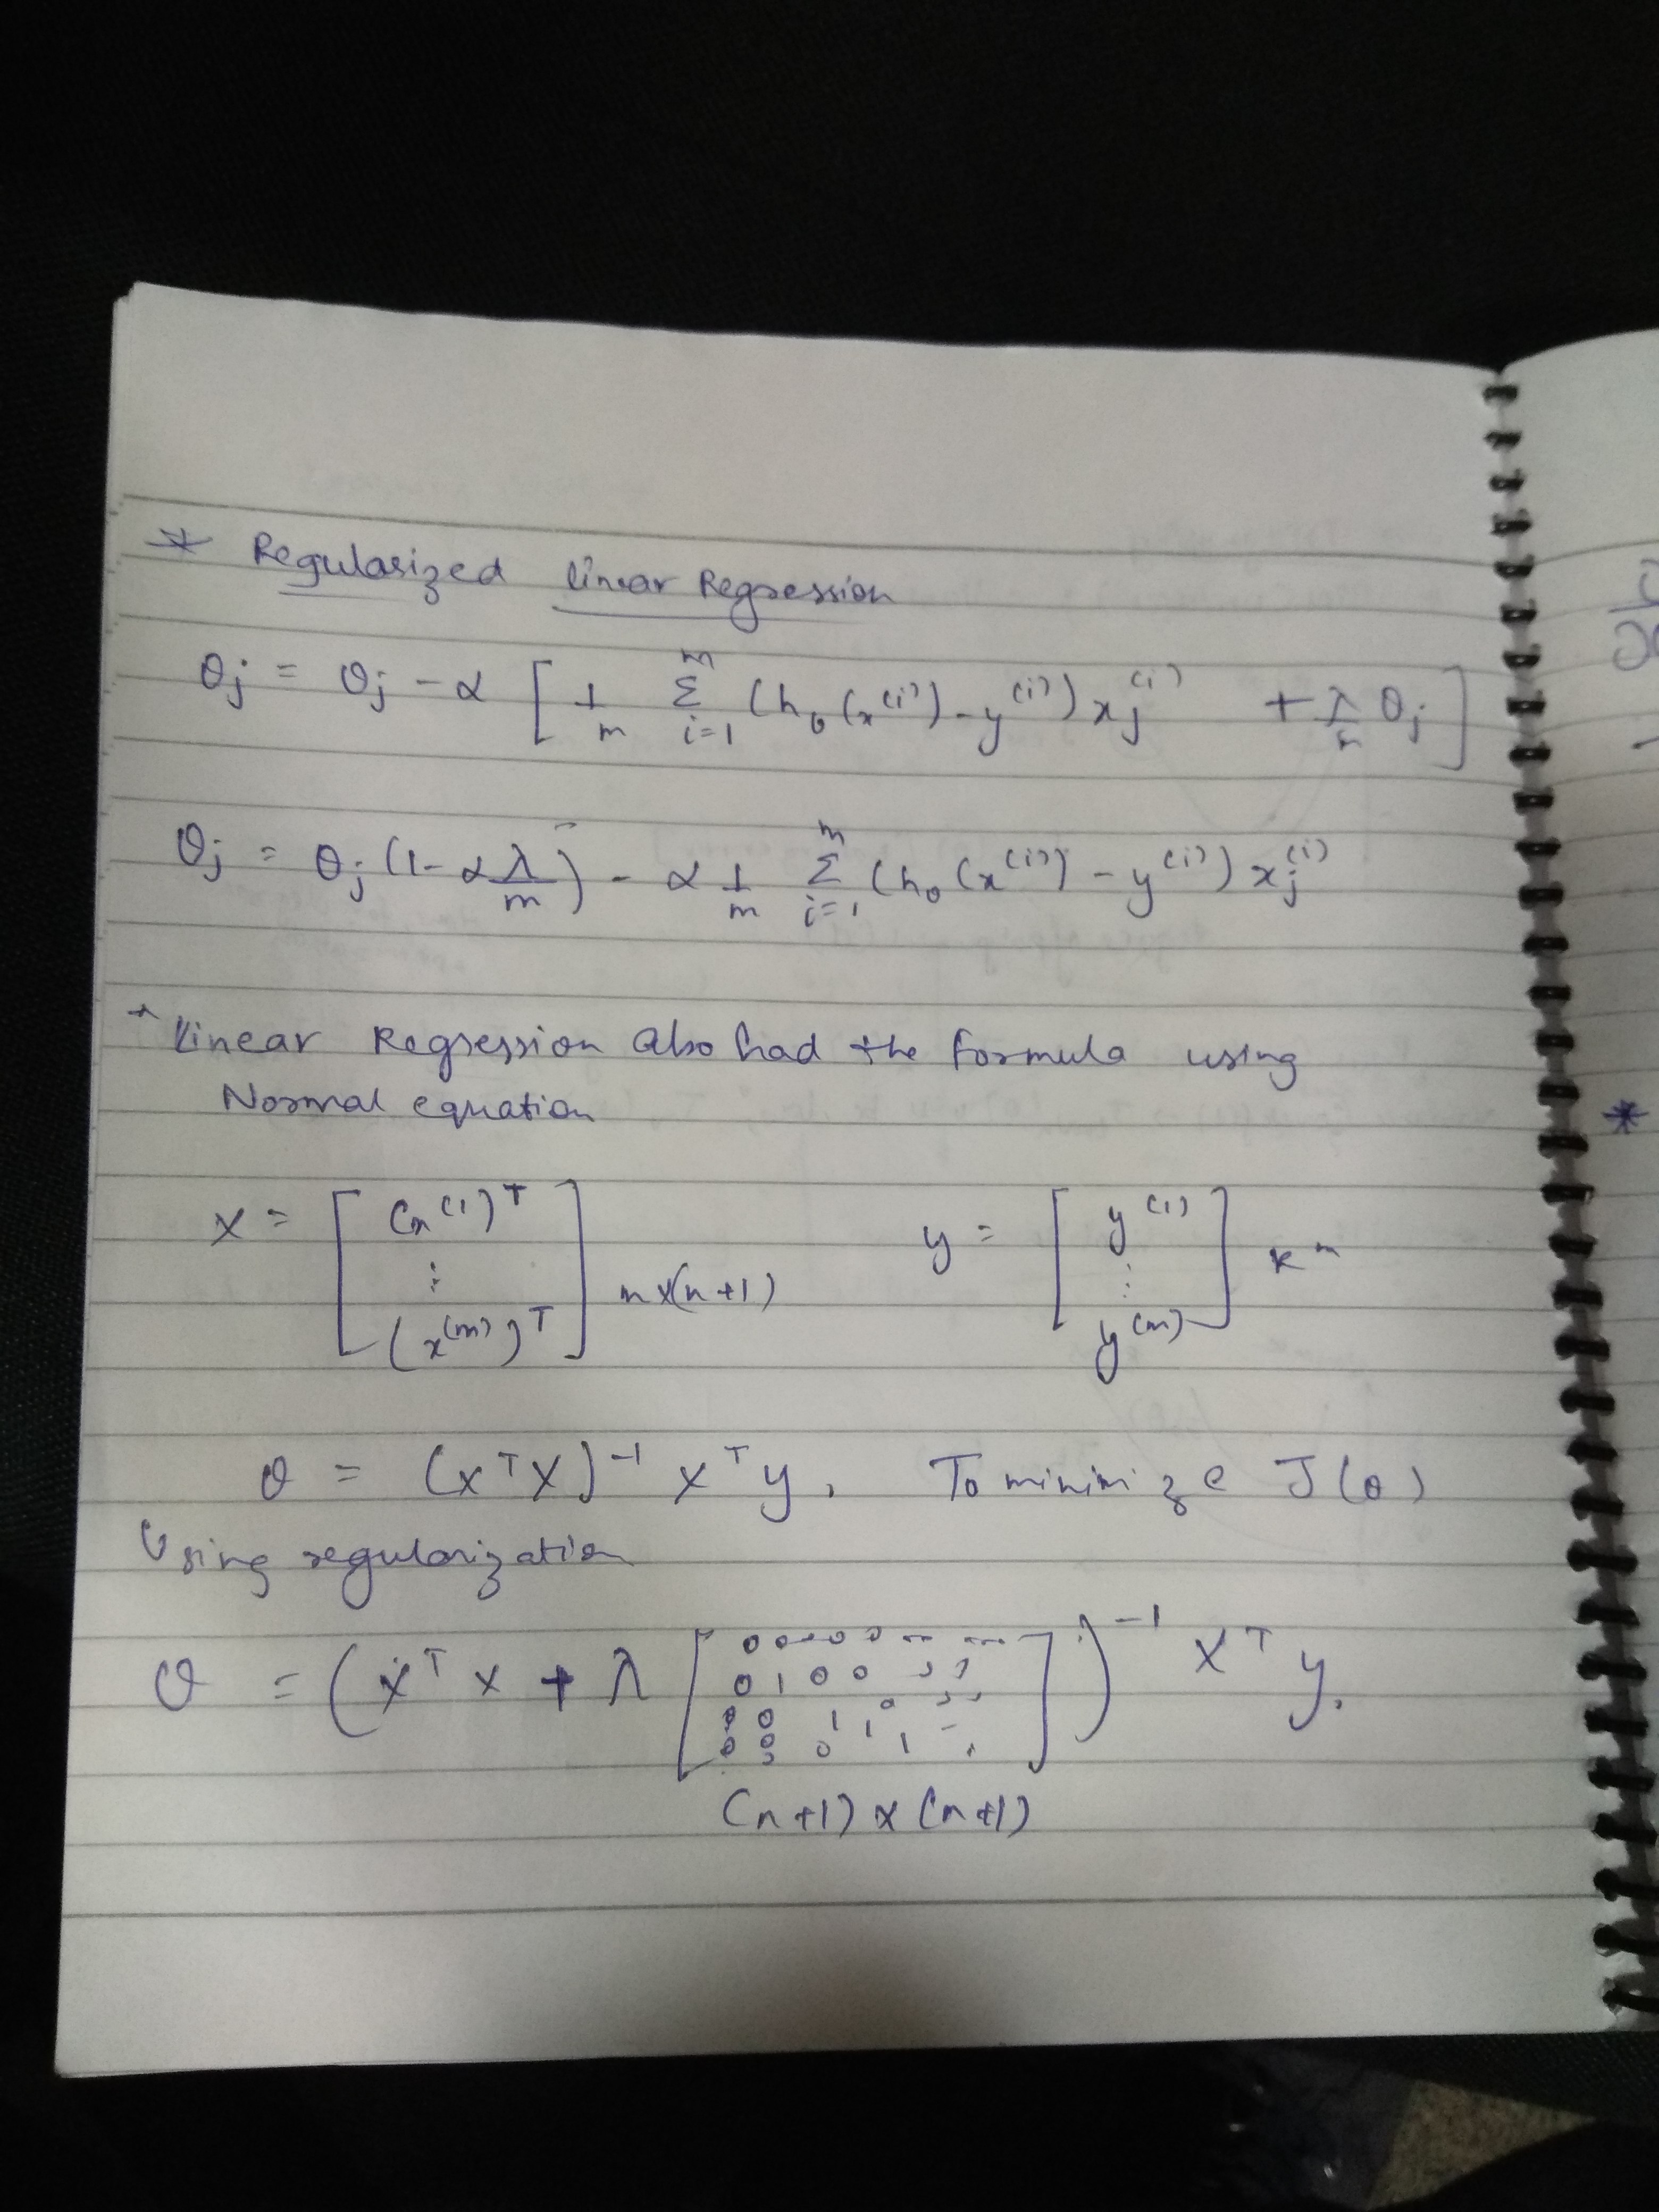 * Regularized linear Regression
θj = θj - α [ 1/m Σ_{i=1}^{m} (hθ(x^(i)) - y^(i)) xj^(i) + λ/m θj ]
θj = θj (1 - α λ/m) - α 1/m Σ_{i=1}^{m} (hθ(x^(i)) - y^(i)) xj^(i)
* Linear Regression also had the formula using
Normal equation
X = [ (x^(1))^T ⋮ (x^(m))^T ] m×(n+1) y = [ y^(1) ⋮ y^(m) ] R^m
θ = (X^T X)^-1 X^T y, To minimize J(θ)
Using regularization
θ = (X^T X + λ [
0 0 0 0
0 1 0 0
0 0 1 1 0
0 0 0 1
])^-1 X^T y.
(n+1) x (n+1)
*